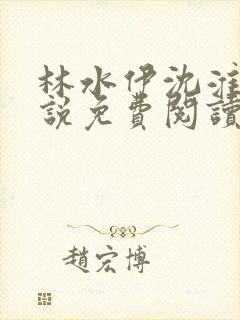 林水伊沈淮
說免費閱讀
趙宏博